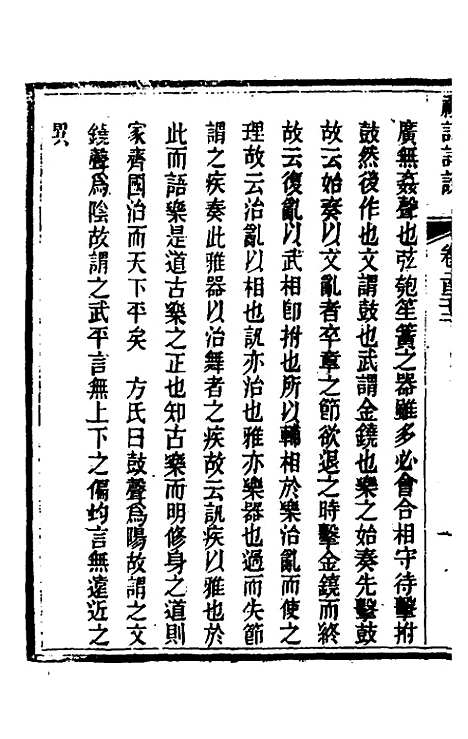 廣無姦聲也弦匏笙簧之器雖多必會合相守待擊拊
鼓然後作也文謂鼓也武謂金鐃也樂之始奏先擊鼓
故云始奏以文亂者卒章之節欲退之時擊金鐃而終
故云復亂以武相卽拊也所以輔相於樂治亂而使之
理故云治亂以相也訊亦治也雅亦樂器也過而失節
謂之疾奏此雅器以治舞者之疾故云訊疾以雅也於
此而語樂是道古樂之正也知古樂而明修身之道則
家齊國治而天下平矣　方氏曰鼓聲爲陽故謂之文
鐃聲爲陰故謂之武平言無上下之偏均言無遠近之
異